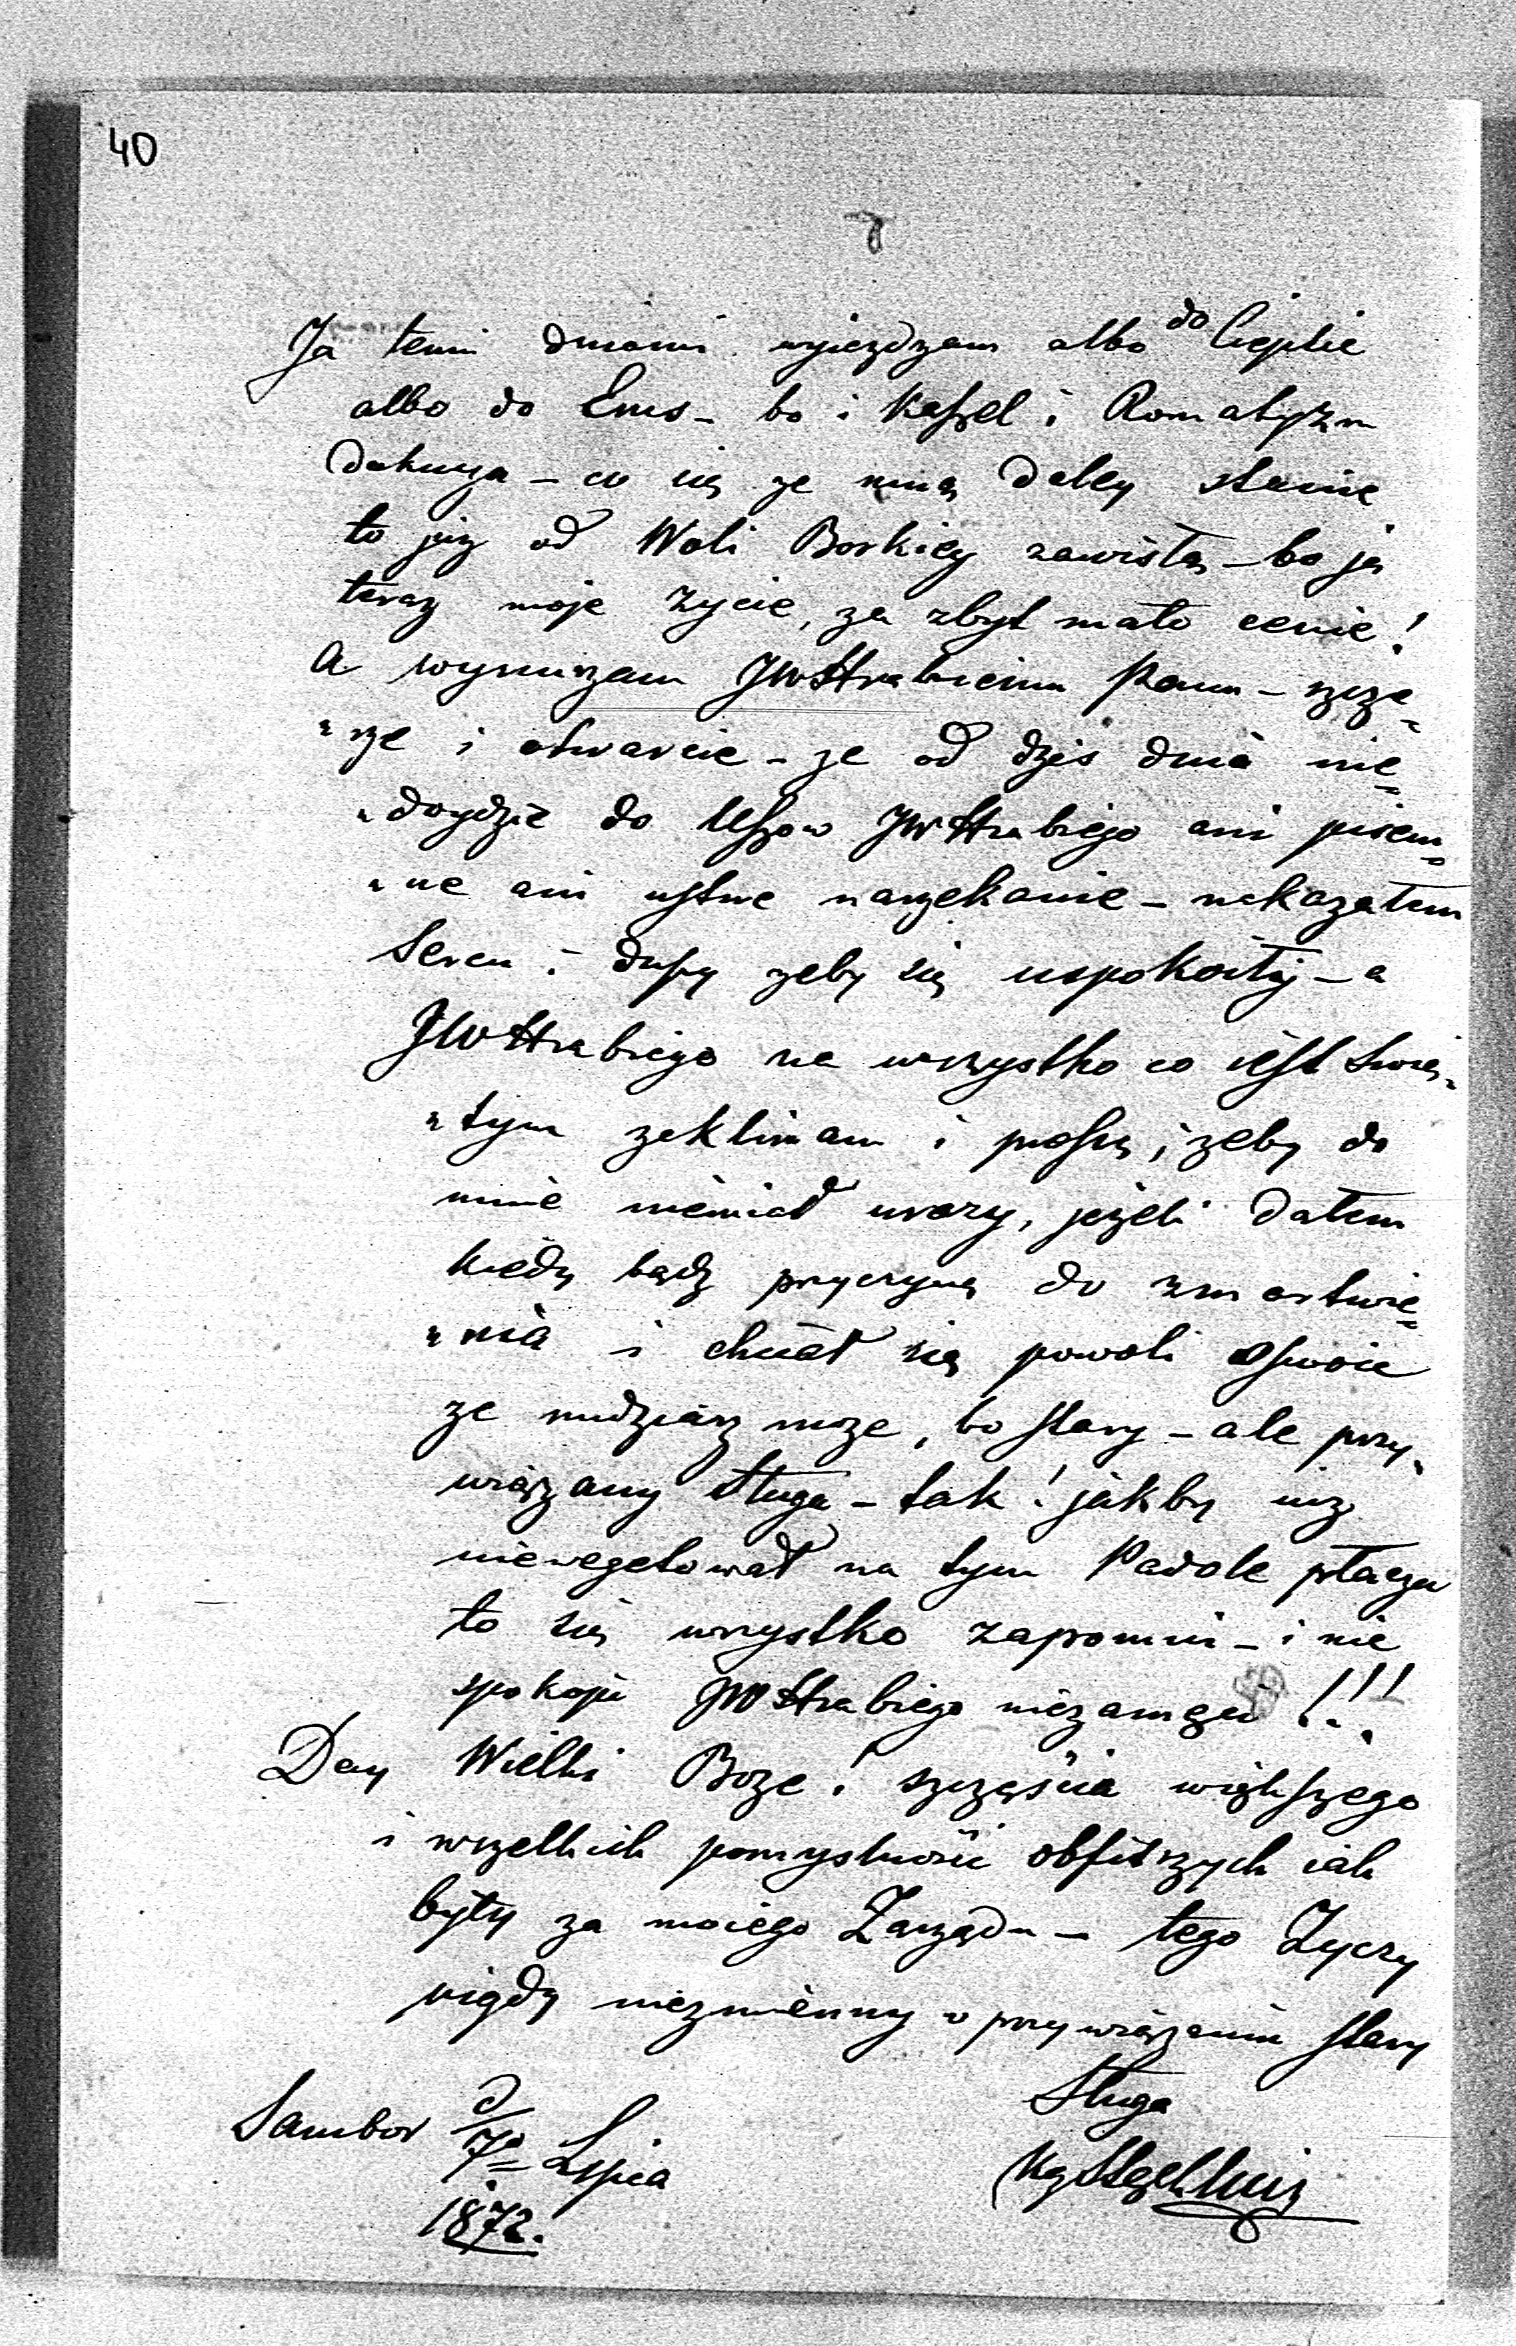 40
Ja temi dniami wyjezdzam albo do Cieplic
albo do Ems – bo i Kaszel i Romatyzm
dokucza – co się ze mną daley stanie
to już od Woli Boskiey zawisła – bo ja
teraz moje życie, za zbyt mało cenie!
A wynurzam JWHrabiemu Panu – szcze„
„rze i otwarcie – ze od dziś dnia nie„
„doydzie do Uszow JWHrabiego ani pisem„
„ne ani ustne narzekanie – nakazałem
Sercu i duszy zeby się uspokoiły – a
JWHrabiego na wszystko co iest Swię„
„tym zaklinam i proszę, zeby do
mnie niemiał urazy, jeżeli dałem
kiedy bądz przyczynę do zmartwie„
„nia i chciał się powoli oswoic
ze nudziarz moze, bo stary – ale przy„
wiązany Sługa – tak! jakby iuz
niewegetował na tym Padole płaczu
to się wszystko zapomni – i nie
spokoju JWHrabiego niezamąci!!!
Day Wielki Boze! szczęścia większego
i wszelkich pomyslności obfitszych iak
były za moiego Zarządu – tego Zyczy
nigdy niezmienny w przywiązaniu stary
Sługa
Sambor d 7º Lipca
1872.